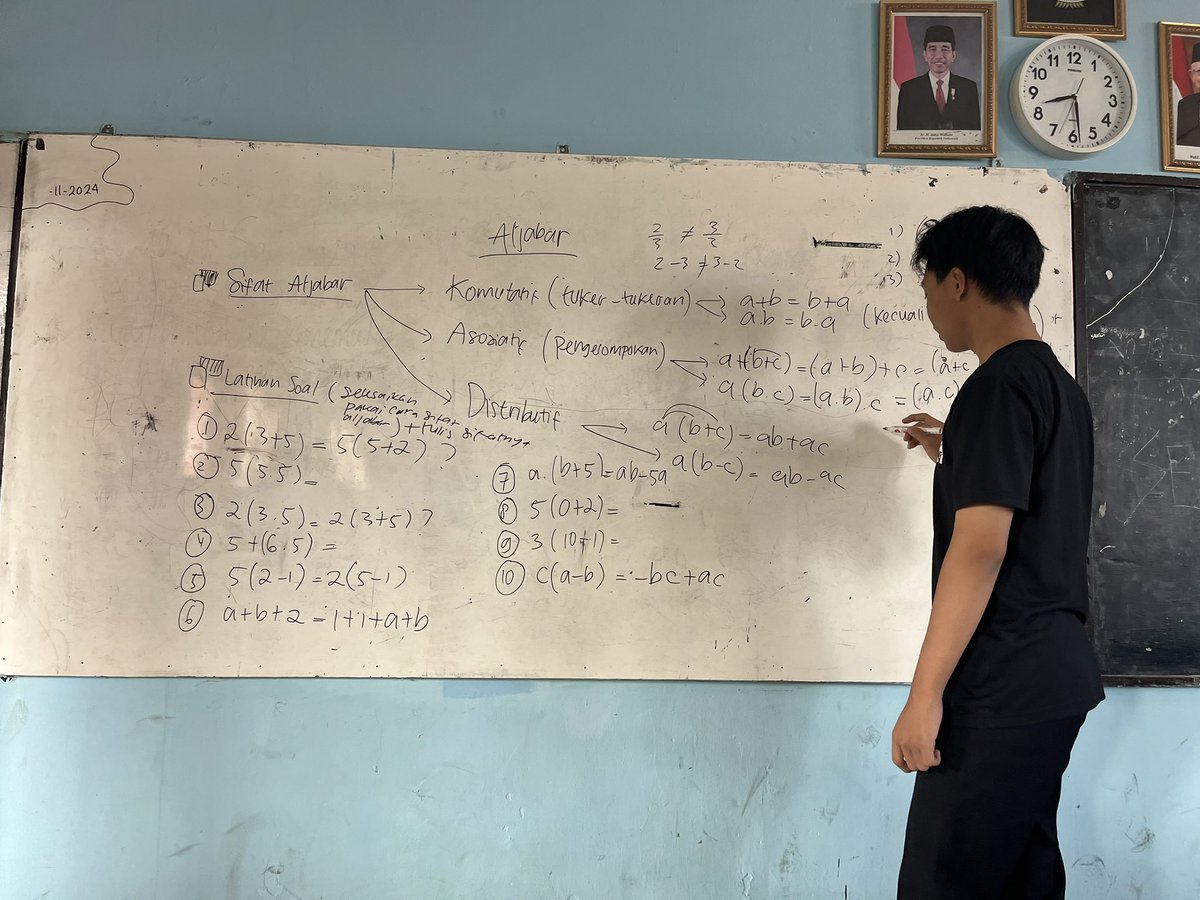 -11-2024
Aljabar
2/3 ≠ 3/2
2-3 ≠ 3-2
1)
2)
3)
Sifat Aljabar
Komutatif (tuker-tukeran)
a+b = b+a
a.b = b.a (kecuali
Asosiatif (pengelompokan)
a+(b+c) = (a+b)+c = (a+c
a(b.c) = (a.b).c = (a.c)
Distributif
a(b+c) = ab+ac
a(b-c) = ab-ac
Latihan Soal (selesaikan
pakai cara sifat
aljabar) + tulis sifatnya
① 2(3+5) = 5(5+2)?
② 5(5.5) =
③ 2(3.5) = 2(3+5)?
④ 5+(6.5) =
⑤ 5(2-1) = 2(5-1)
⑥ a+b+2 = 1+1+a+b
⑦ a.(b+5) = ab-5a
⑧ 5(0+2) =
⑨ 3(10+1) =
⑩ c(a-b) = -bc+ac
12
1
2
3
4
5
7
8
9
10
11